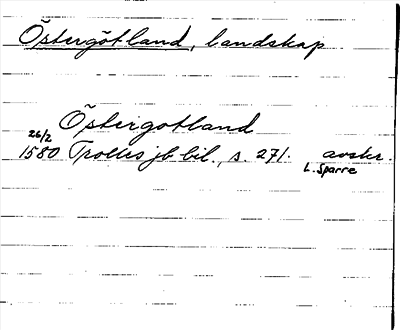 Östergötland, landskap
Östergotland
26/2
1580 Trolles jb bil., s. 271. avskr.
L. Sparre